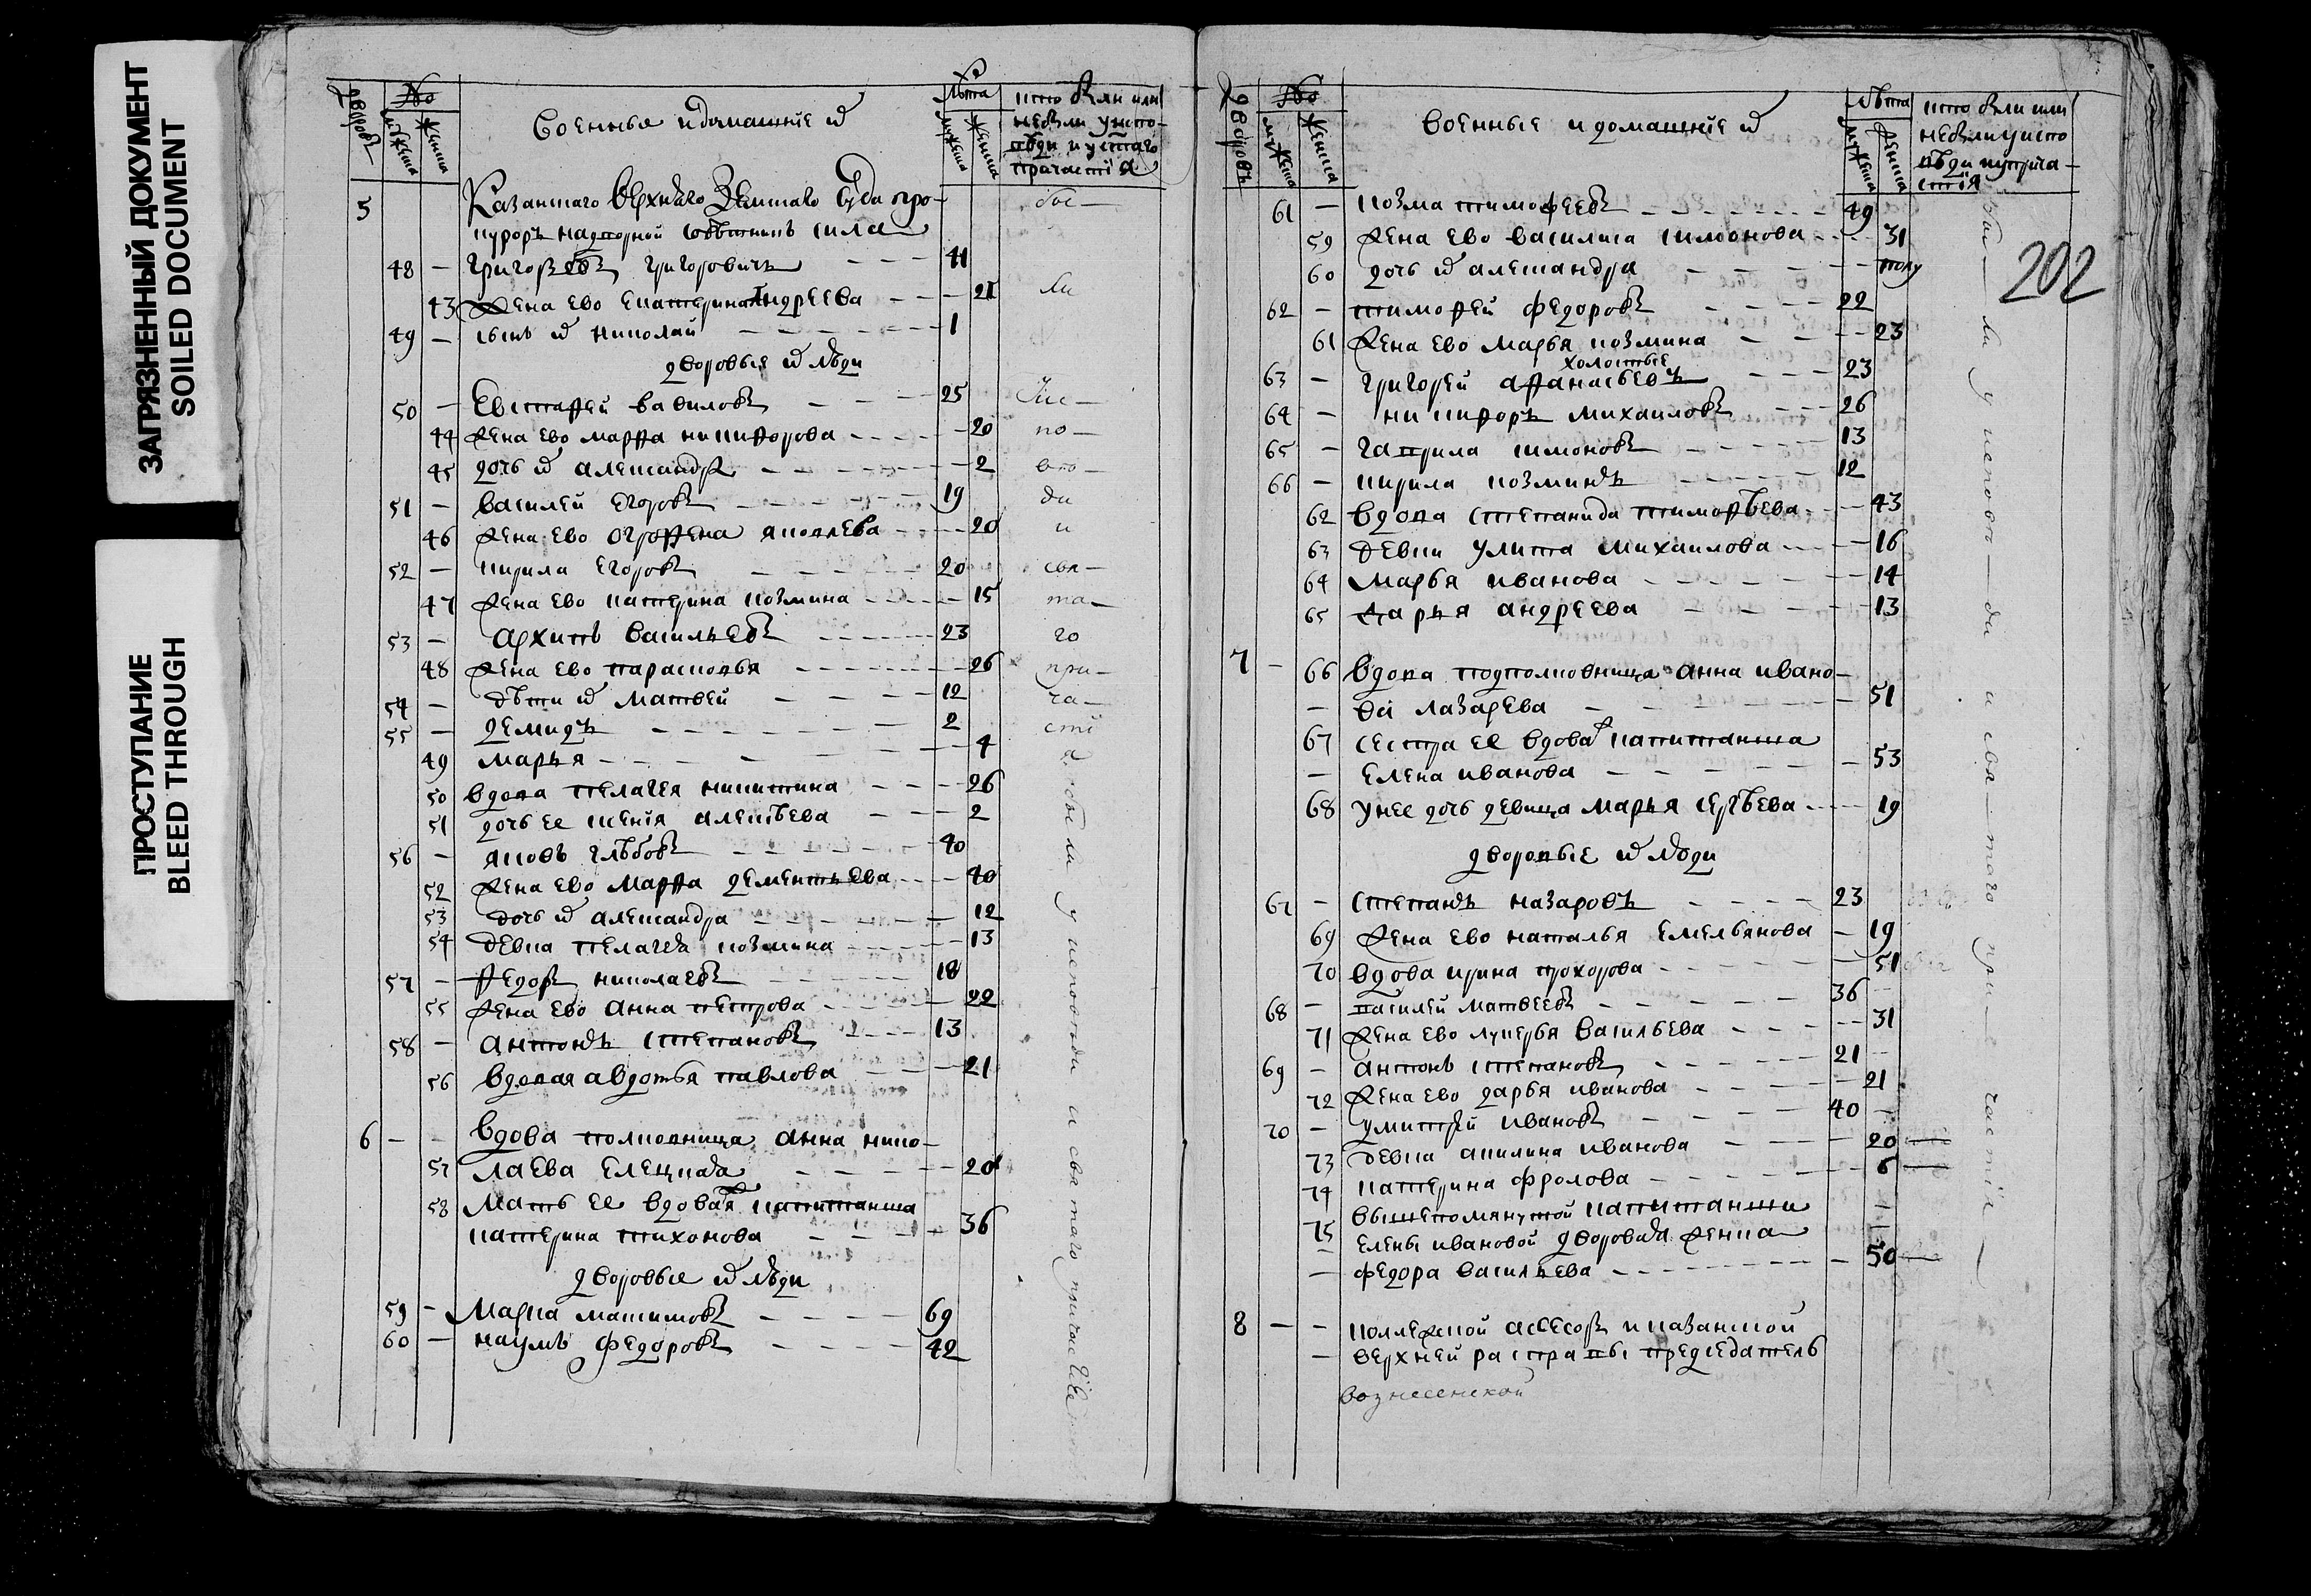 ЗАГРЯЗНЕННЫЙ ДОКУМЕНТ
SOILED DOCUMENT
ПРОСТУПАНИЕ
BLEED THROUGH
дворовъ
№
мужеска
женска
военные и домашние их
лѣта
мужеска
женска
кто был или
не был у испо-
вѣди и у святаго
причастия
5 Казанскаго верхняго Земскаго суда про-
курор надворной совѣтникъ сила
48 — григорьев григоровичъ — 41
43 жена ево екатерина андреева — 21
49 — сынъ их николай — 1
дворовые их люди
50 — Евстафей вавилов — 25
44 жена ево марфа никифорова — 20
45 дочь их александра — 2
51 — василей егоров — 19
46 жена ево огрофена яковлева — 20
52 — кирила егоров — 20
47 жена ево катерина козмина — 15
53 — архипъ васильев — 23
48 жена ево парасковья — 26
54 — дѣти их матвей — 12
55 — демидъ — 2
49 марья — 4
50 вдова пелагея никитина — 26
51 дочь ее ксения алексѣева — 2
56 — яковъ глѣбов — 40
52 жена ево марфа дементьева — 40
53 дочь их александра — 12
54 девка пелагея козмина — 13
57 — федор николаев — 18
55 жена ево анна петрова — 22
58 — антонъ степанов — 13
56 вдовая авдотья павлова — 21
6 — вдова полковница анна нико-
57 лаева елецкая — 20
58 мать ее вдовая капитанша
катерина тихонова — 36
дворовые их люди
59 — марка максимов — 69
60 — наумъ федоров — 42
бы —
ли
у ис —
по —
вѣ —
ди
и
свя —
та —
го
при —
ча —
сті
я
были у исповѣди и святаго причастія
дворовъ
№
мужеска
женска
военные и домашние их
лѣта
мужеска
женска
кто был или
не был у испо
вѣди и у прича-
стия
202
61 — козма тимофеев — 49
59 жена ево василиса симонова — 31
60 дочь их александра — полу
62 — тимофей федоров — 22
61 жена ево марья козмина — 23
холостые
63 — григорей афанасьевъ — 23
64 — никифоръ михаилов — 26
65 — гаврила симонов — 13
66 — кирила козминъ — 12
62 вдова степанида тимофѣева — 43
63 девки улита михаилова — 16
64 марья иванова — 14
65 дарья андреева — 13
7 — 66 вдова подполковница анна ивано-
— ва лазарева — 51
67 сестра ее вдовая капитанша
— елена иванова — 53
68 у нее дочь девица марья сергѣева — 19
дворовые их люди
67 — степанъ назаровъ — 23
69 жена ево наталья емельянова — 19
70 вдова ирина прохорова — 51
68 — василей матвеев — 36
71 жена ево лукерья васильева — 31
69 — антонъ степанов — 21
72 жена ево дарья иванова — 21
70 — дмитрей иванов — 40
73 девка акилина иванова — 20
74 катерина фролова — 6
75 вышепомянутой капитанши
— елены ивановой дворовая женка
— федора васильева — 50
8 — — коллежской ассесор и казанской
— верхней расправы председатель
вознесенской
бы — ли у исповѣ — ди и свя — таго при — частія